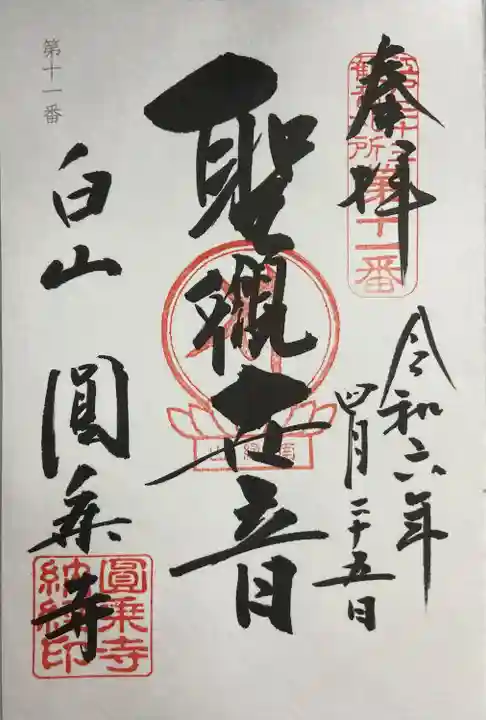 奉拝
江戸三十三
観音札所
第十一番
令和六年
四月二十五日
聖観世音
第十一番
白山 圓乗寺
圓乗寺
納経印